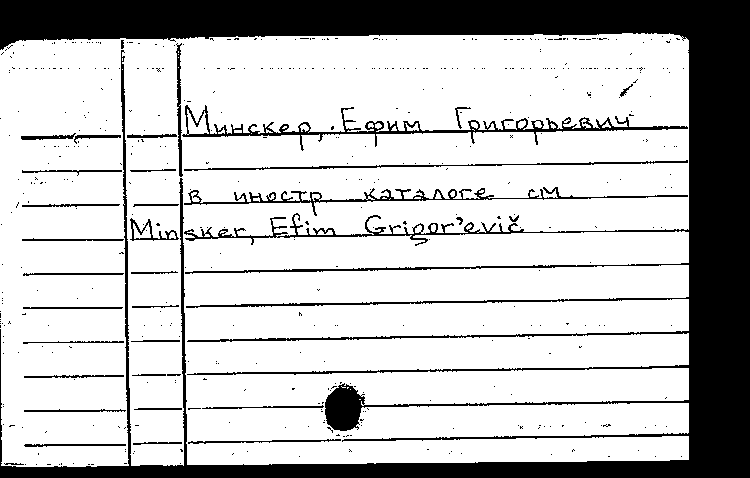 Минскер, Ефим Григорьевич
в иностр каталоге см.
Minsker, Efim Grigor'evič